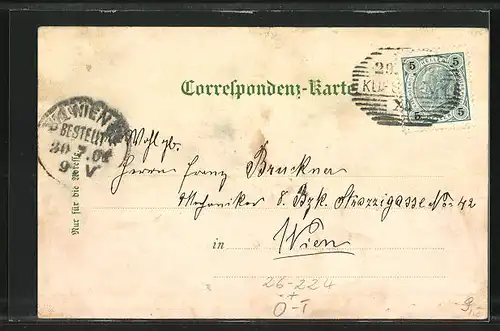 Correspondenz-Karte
5 5
5 5
29.
WIEN
BESTELLT
30.7.01
9 V
Nur für die Adresse
Wohlgb.
Herrn Franz Bruckner
Mechaniker 8. Bzk. Strozzigasse No 42
in Wien
26-224
+
Ö-T
9,-